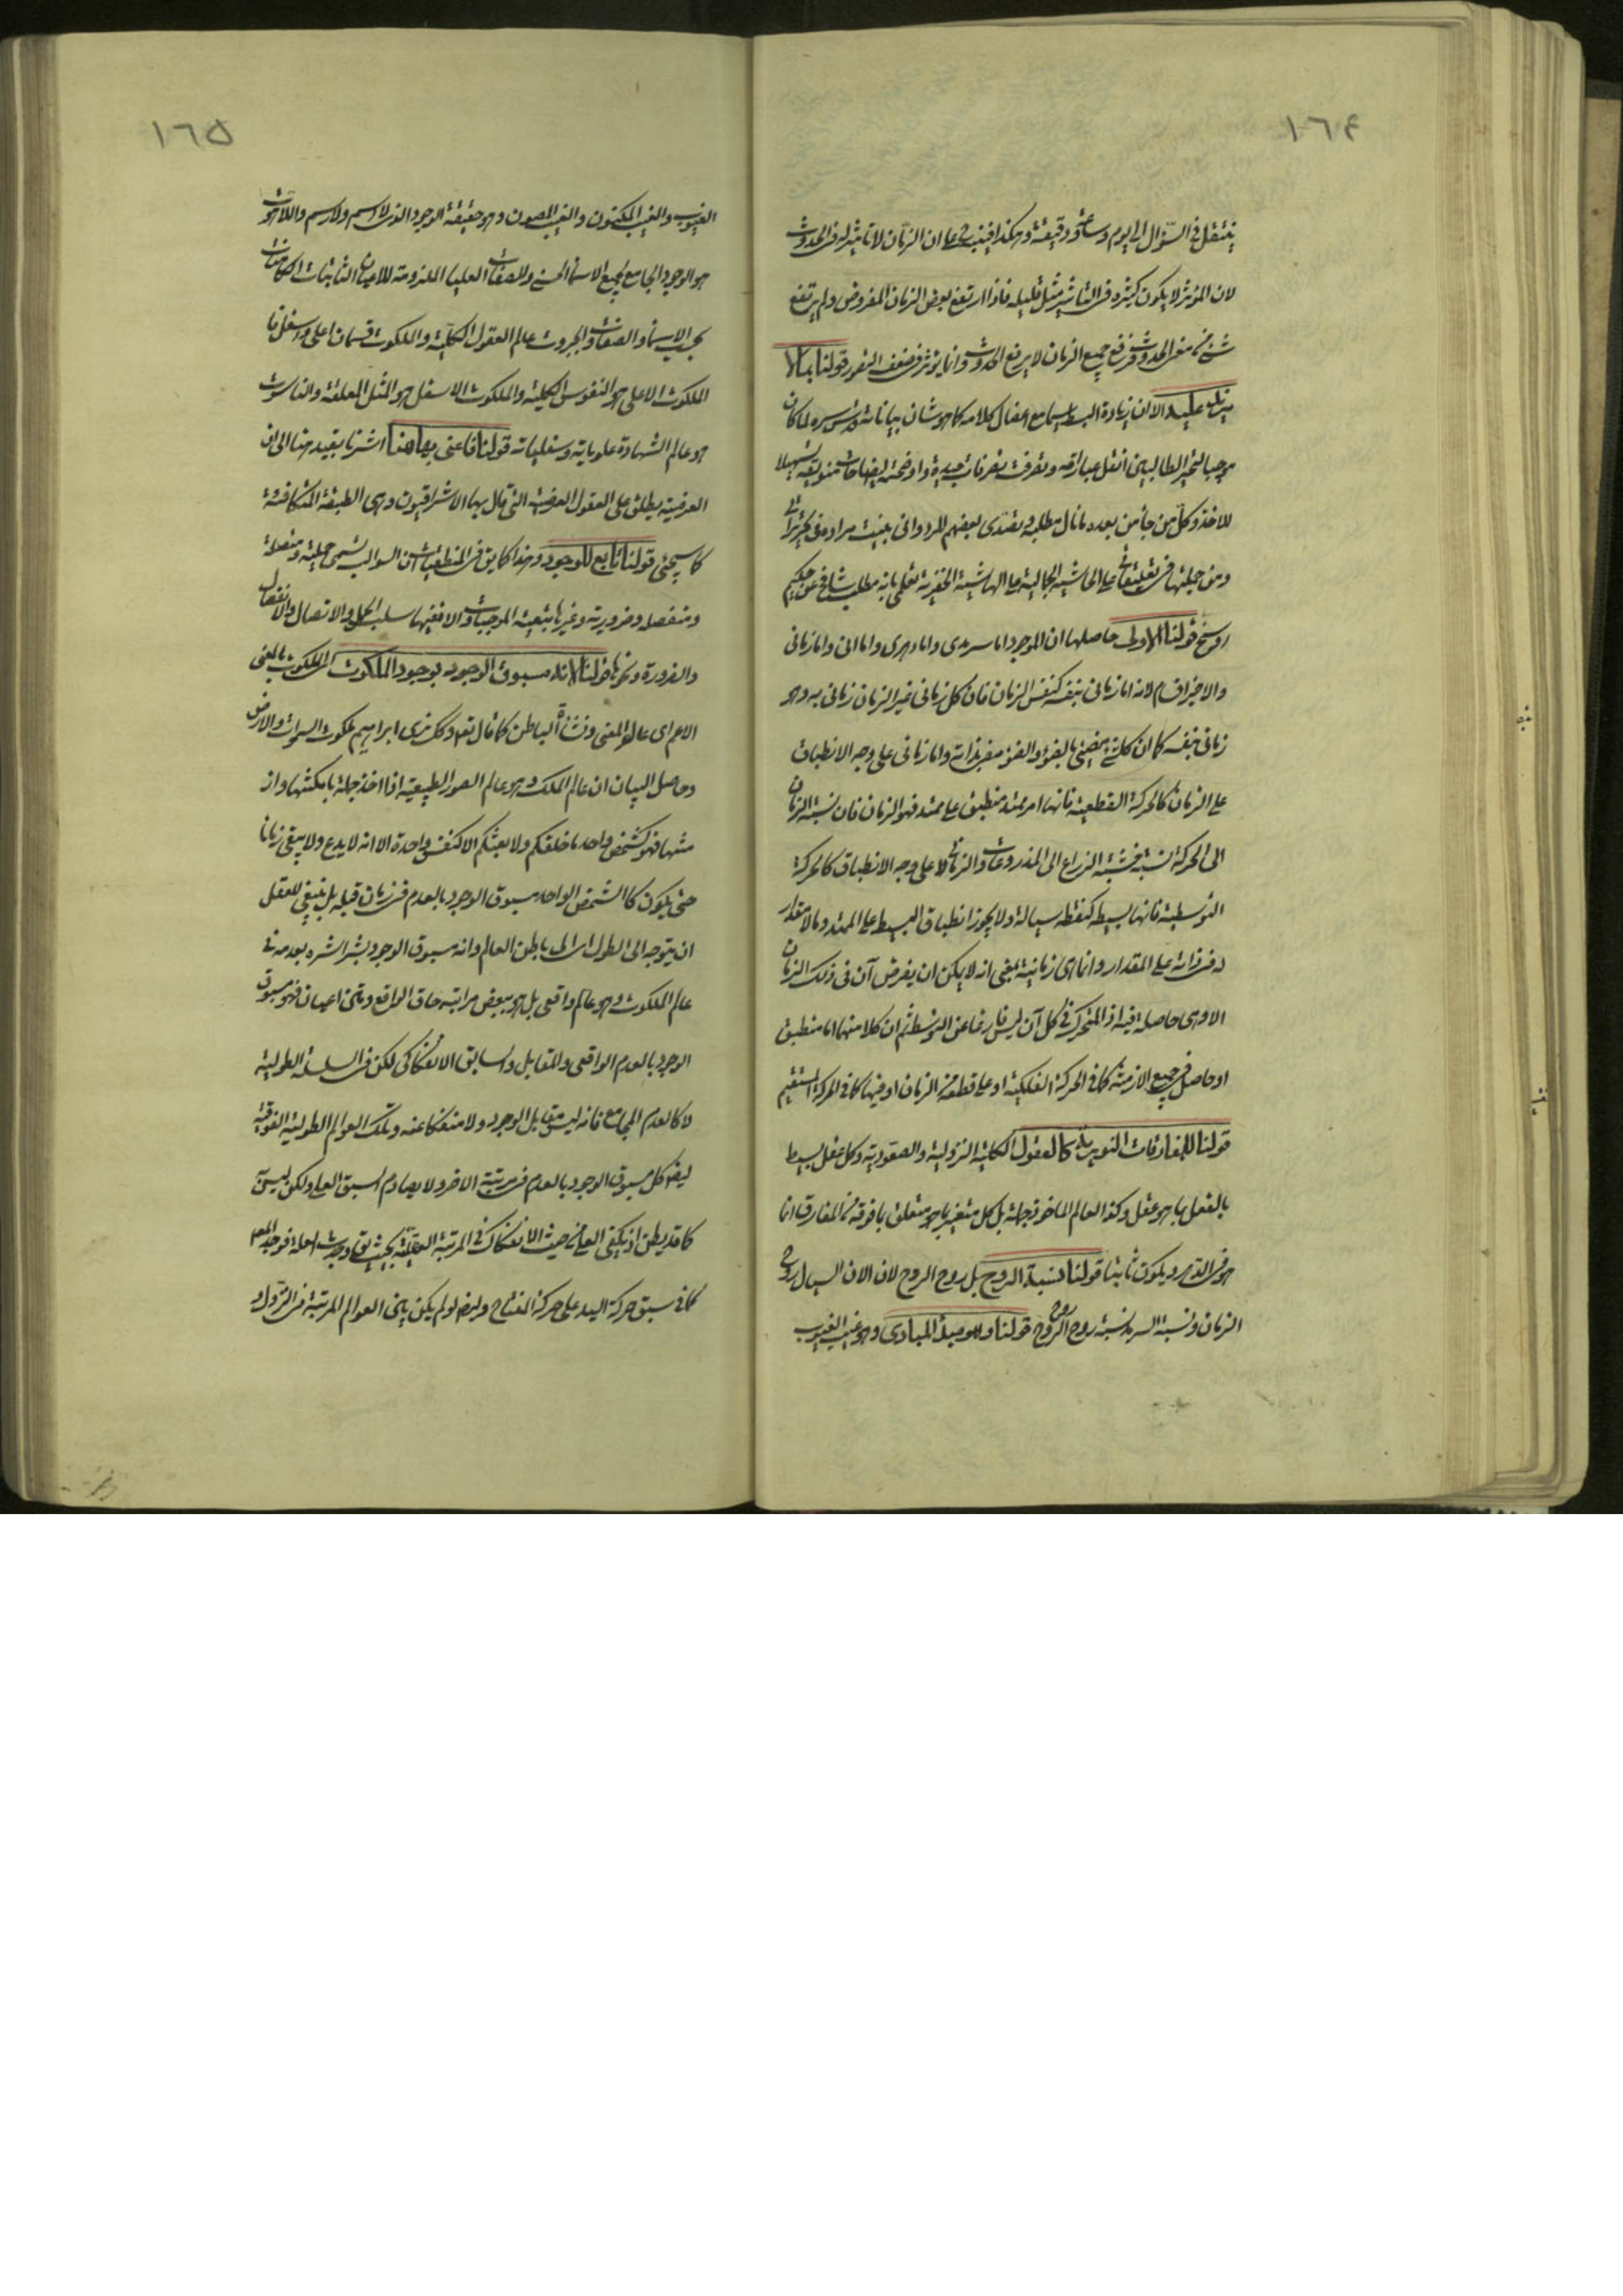 ١٦٤
ينتقل في السؤال الى يوم وساعة ودقيقة وهكذا فينبه على ان الزمان لا تاثير له في الحدوث
لان المؤثر لا يكون كثيره في التاثير مثل قليله فاذا ارتفع بعض الزمان المفروض ولم يرتفع
شيء من الحدوث فرفع جميع الزمان لا يرفع الحدوث وانما يؤثر في ضعف النفور قولنا بما لا
مزيد عليه الا ان زيادة البسط سيما مع اغفال كلامه كما هو شان بياناته ودستوره لما كان
موجبا لتحير الطالبين انتقل عباراته وتصرفت تصرفات جيدة واوضحته ايضاحات تسهيلا
للاخذ وكل من جاء من بعده ما نال مطلبه وتصدى بعضهم للرد وانى بنيت مراده في تحريراتى
ومن جملتها في تعليقاتى على الحاشية الجمالية على الهاشية الخفرية تعلم بانه مطلب شامخ عن حكيم
راسخ قولنا الاولى حاصلها ان الموجود اما سرمدى واما دهرى واما انى واما زمانى
والاخير اقسام لانه اما زمانى بنفسه كنفس الزمان فان كل زمانى غير الزمان زمانى به وهو
زمانى بنفسه كما ان كل شيء مضيئ بالضوء والضوء مضيئ بذاته واما زمانى على وجه الانطباق
على الزمان كالحركة القطعية فانها امر ممتد منطبق على ممتد فهو الزمان فان نسبة الزمان
الى الحركة نسبة الذراع الى المذروعات والزمانى لا على وجه الانطباق كالحركة
التوسطية فانها بسيطة كنقطة سيالة ولا يجوز انطباق البسيط على الممتد وما لا مقدار
له في ذاته على المقدار وانما هى زمانية بمعنى انه لا يمكن ان يفرض آن في ذلك الزمان
الا وهى حاصلة فيه اذ المتحرك في كل آن ليس فارغا عن التوسط ثم ان كلا منهما اما منطبق
او حاصل في جميع الازمنة كما في الحركة الفلكية او على قطعة من الزمان او فيها كما في الحركة المستقيم
قولنا للمفارقات النورية كالعقول الكلية النزولية والصعودية وكل عقل بسيط
بالفعل بما هو عقل وكذا العالم الماخوذ جملة بل كل متغير بما هو متعلق بما فوقه من المفارقات انما
هو في الدهر ويكون ثابتا قولنا نسبة الروح بل روح الروح لان الان السيال روح
الزمان ونسبة السرمد نسبة روح روح الروح قولنا وللمبدأ المبادى وهو غيب الغيوب
١٦٥
الغيوب والغيب المكنون والغيب المصون وهو حقيقة الوجود الذى لا اسم ولا رسم واللاهوت
هو الوجود الجامع لجميع الاسماء الحسنى والصفات العليا الملزومة للاعيان الثابتات الكامنات
بحسب الاسماء والصفات والجبروت عالم العقول الكلية والملكوت قسمان اعلى واسفل فا
الملكوت الاعلى هو النفوس الكلية والملكوت الاسفل هو المثل المعلقة والناسوت
هو عالم الشهادة علوياته وسفلياته قولنا فاعنى بها هنا اشرنا بقيد هنا الى ان
العرضية يطلق على العقول العرضية التى قال بها الاشراقيون وهى الطبقة المتكافئة
كما سيجئ قولنا تابع للوجود وهذا كما يق في المنطقيات ان السوالب تسمى حملية ومتصلة
ومنفصلة وضرورية وغيرها بتبعية الموجبات والا ففيها سلب الحمل والاتصال والانفصال
والضرورة ونحوها قولنا لانه مسبوق الوجود بوجود الملكوت الملكوت بالمعنى
الاعم اى عالم المعنى ونشأة الباطن كما قال تعه وكذلك نرى ابراهيم ملكوت السموات والارض
وحاصل البيان ان عالم الملك وهو عالم الصور الطبيعية اذا اخذ جملة بامكنتها واز
منتها فهو كشخص واحد ما خلقكم ولا بعثكم الا كنفس واحدة الا انه لا يدع ولا يبقى زمانا
حتى يكون كالشخص الواحد مسبوق الوجود بالعدم في زمان قبله بل ينبغي للعقل
ان يتوجه الى الطول اى الى باطن العالم وانه مسبوق الوجود بشراشره بعدمه في
عالم الملكوت وهو عالم واقعى بل هو ببعض مراتبه حاق الواقع ومتن اعيان فهو مسبوق
الوجود بالعدم الواقعى والمقابل والسابق الانفكاكى لكن في السلسلة الطولية
لا كالعدم المجامع فانه ليس مقابل الوجود ولا منفكا عنه وتلك العوالم الطولية الفوقية
ايضا كل مسبوق الوجود بالعدم في مرتبة الاخر ولا يصادم السبق العلى ولكن ليس
كما قد يظن اذ يكفى العلى من حيث الانفكاك في المرتبة العقلية بحيث يق وجدت العلة فوجد المعلول
كما في سبق حركة اليد على حركة المفتاح وايضا لو لم يكن بين العوالم المرتبة في النزول و